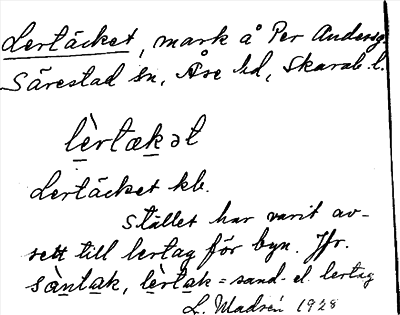 Lertäcket, mark å Per Andersg.
Särestad sn, Åse hd, Skarab. l.
lèrtækət
Lertäcket kb.
Stället har varit av-
sett till lertag för byn. Jfr.
sàntak, lèrtak = sand- el. lertag
L. Madsén 1928